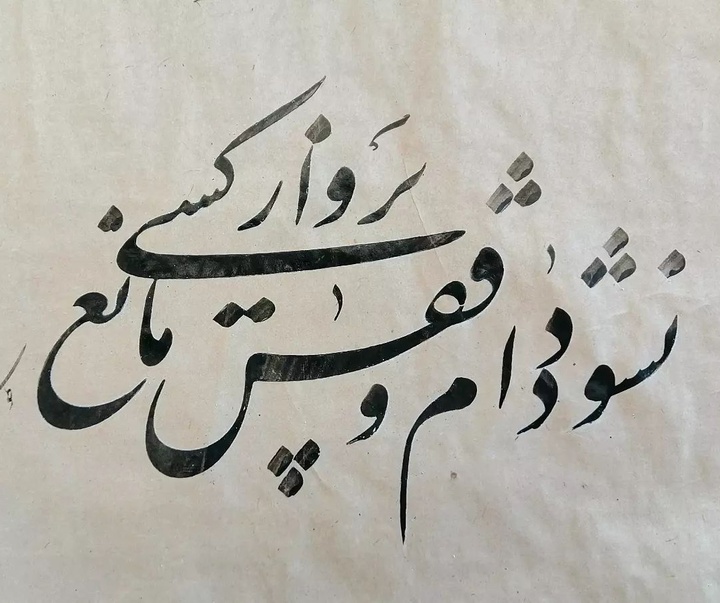 نشود دام و قفس مانع پرواز کسی